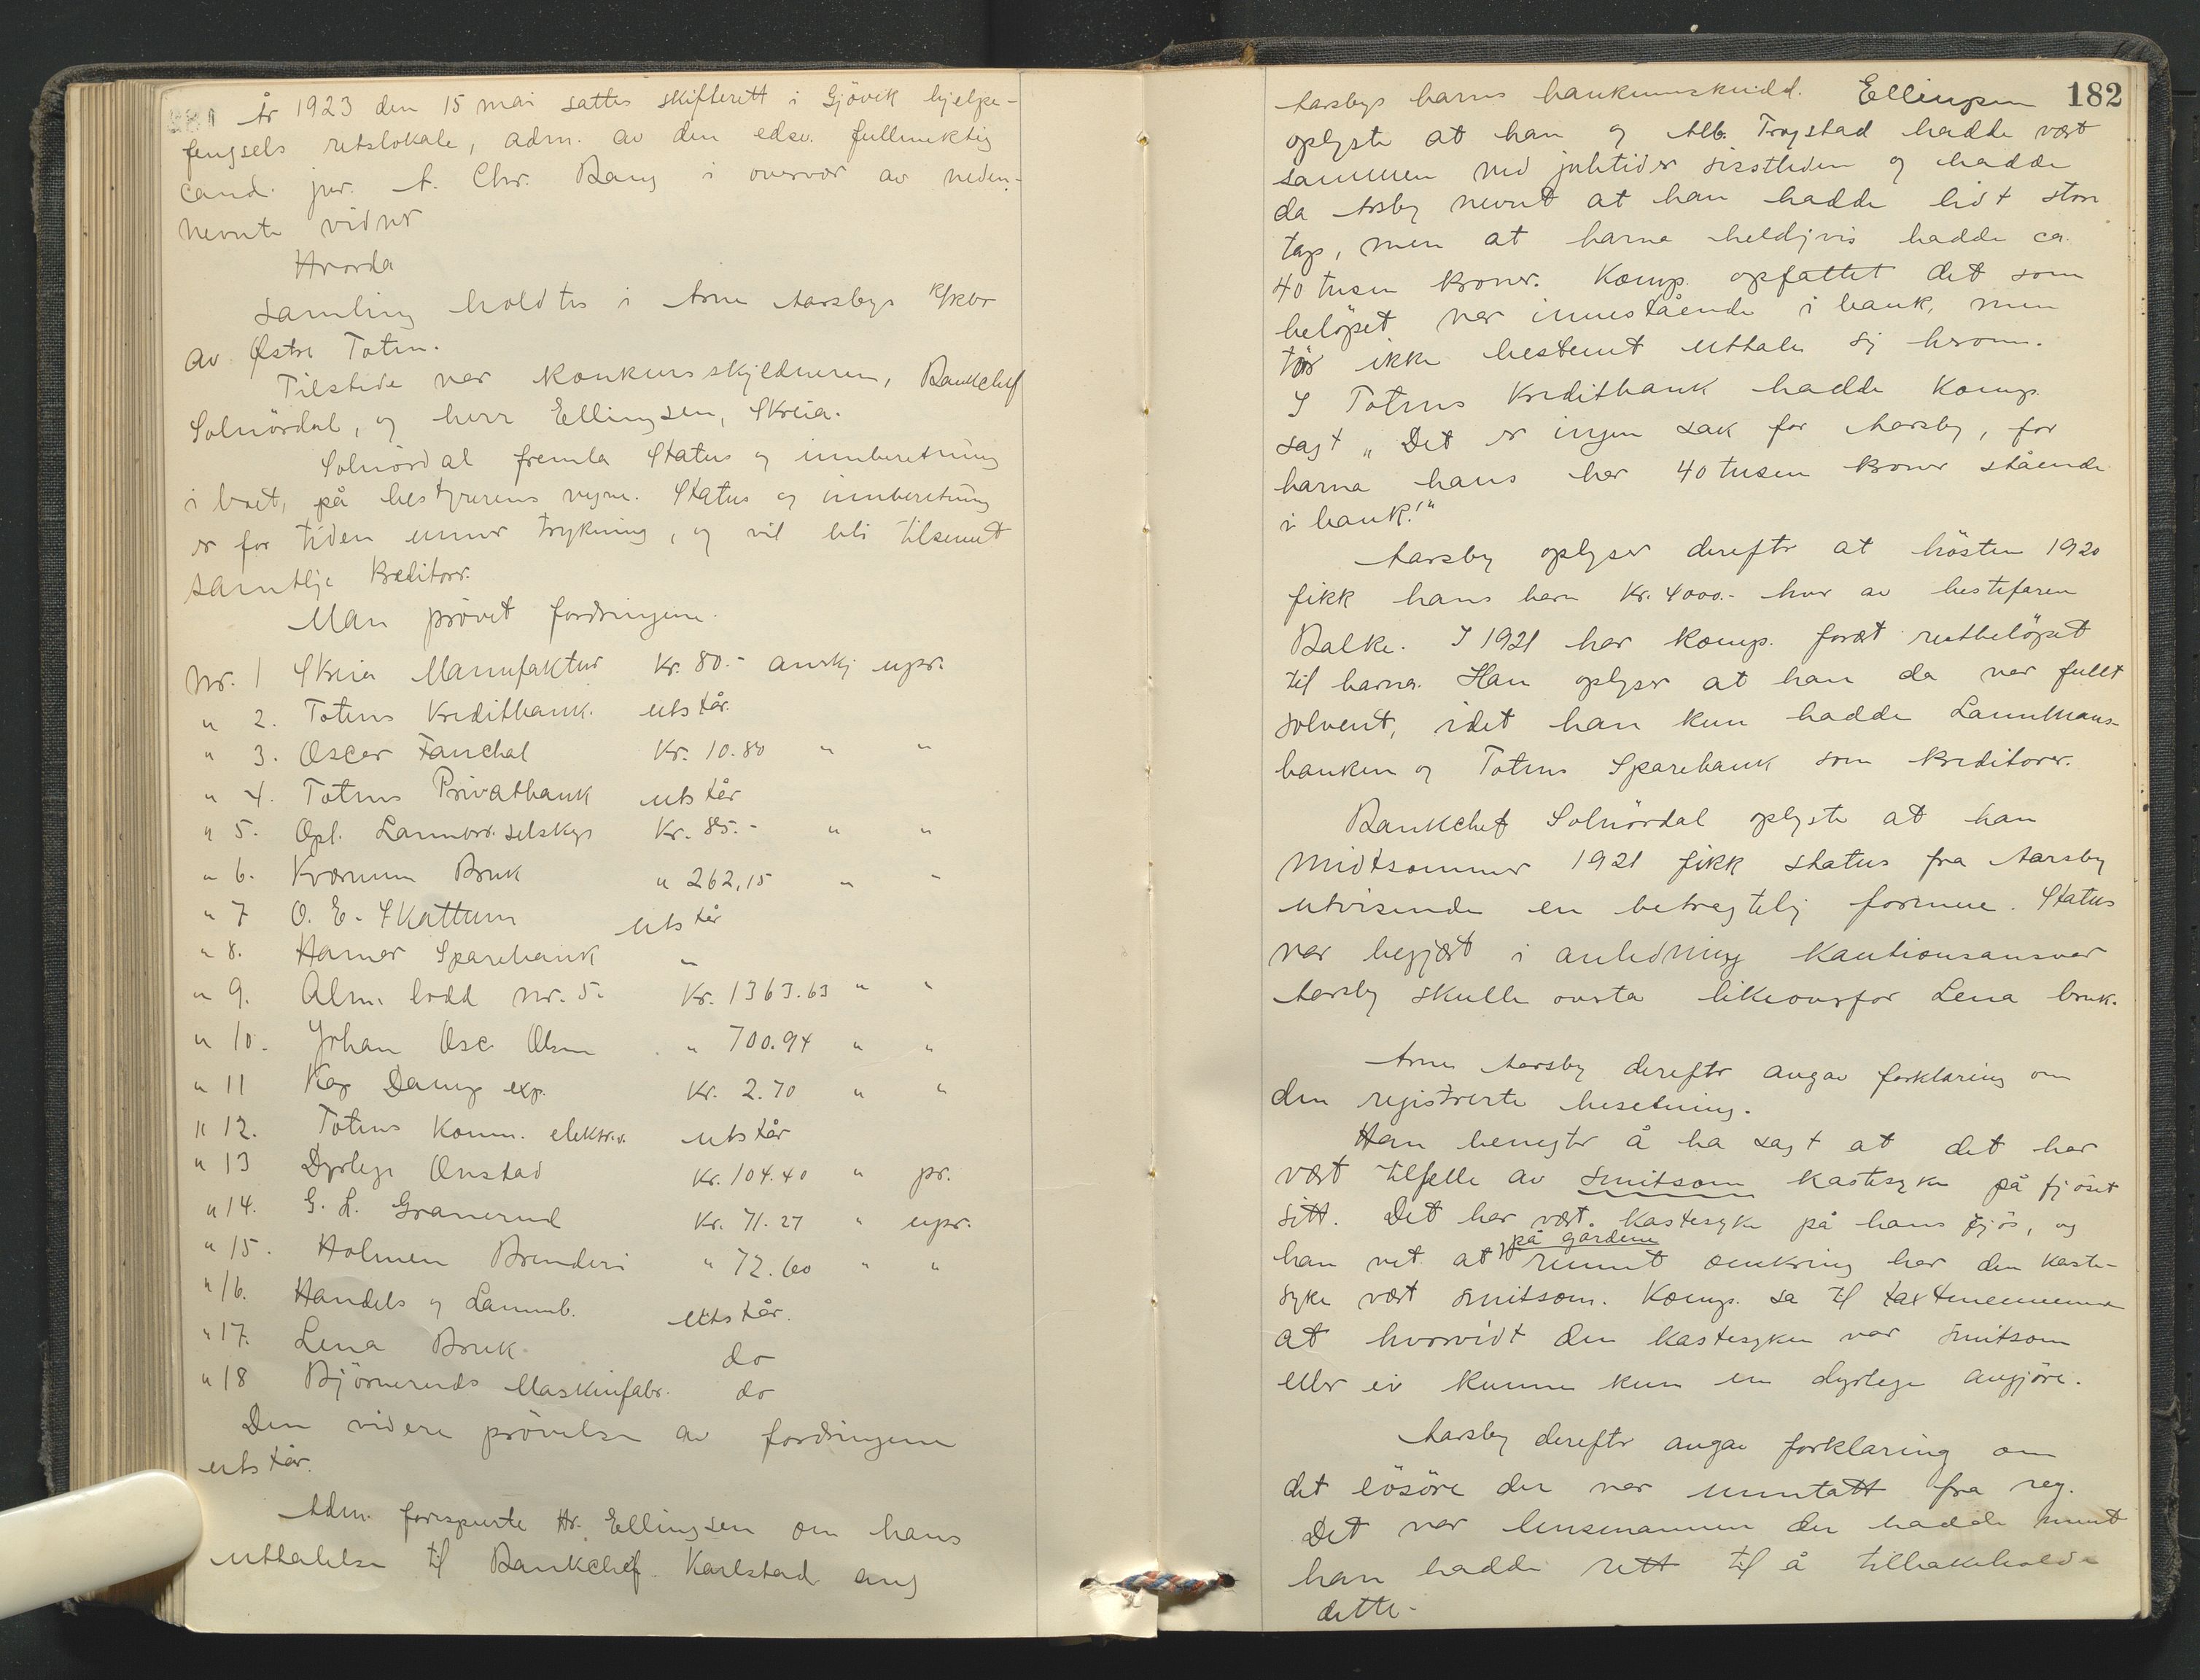 År 1923 den 15 mai sattes skifterett i Gjövik hjelpe-
fengsels retslokale, adm. av den edsv. fullmektig
cand. jur. A. Chr. Bang i overvær av neden-
nevnte vidner
Hvorda
samling holdtes i Arne Aarsbys k/kbo
av Østre Toten.
Tilstede var konkursskyldneren, Bankchef
Solnördal, og herr Ellingsen, Skreia.
Solnördal fremla Status og innberetning
i boet, på bestyrerens vegne. Status og innberetning
er for tiden unner trykning, og vil bli tilsennt
samtlige kreditorer.
Man prövet fordringene.
Nr. 1 Skreia Manufaktur Kr. 80.- anerkj upr.
" 2. Totens Kreditbank. utstår.
" 3. Oscar Fauchal Kr. 10.80 " "
" 4. Totens Privatbank utstår
" 5. Opl. Lannbr. selskap Kr. 85.- " "
" 6. Kværnum Bruk " 262,15 " "
" 7 O. E. Skattum utstår
" 8. Hamar Sparebank "
" 9. Alm. lodd nr. 5. Kr. 1363.63 " "
" 10. Johan Osc. Olsen " 700.94 " "
" 11 Kap Damp exp. Kr. 2.70 " "
" 12. Totens Komm. elektr.v. utstår
" 13 Dyrlege Onstad Kr. 104.40 " pr.
" 14. G. L. Granerud Kr. 71.27 " upr.
" 15. Holmen Brenderi " 72.60 " "
" 16. Handels og Lannb. utstår.
" 17. Lena Bruk. do
" 18 Björneruds Maskinfabr. do
Den videre prövelse av fordringene
utstår.
Adm. forespurte Hr. Ellingsen om hans
uttalelse til Bankchef Karlstad ang
182
Aarsbys barns bankinnskudd. Ellingsen
oplyste at han og Alb. Trogstad hadde vært
sammen ved juletider sisstleden og hadde
da Arsby nevnt at han hadde lidt store
tap, men at barna heldigvis hadde ca.
40 tusen kroner. Komp. opfattet det som
belöpet var innestående i bank, men
tör ikke bestemt uttale sig herom.
I Totens Kreditbank hadde Komp.
sagt „Det er ingen sak for Aarsby, for
barna hans har 40 tusen kroner stående
i bank!"
Aarsby oplyser derefter at hösten 1920
fikk hans barn Kr. 4000.- hver av bestefaren
Balke. I 1921 har komp. foræt restbelöpet
til barna. Han oplyser at han da var fullt
solvent, idet han kun hadde Lannmans-
banken og Totens Sparebank som kreditorer.
Bankchef Solnördal oplyste at han
midtsommer 1921 fikk status fra Aarsby
utvisende en betragtelig formue. Status
var begjært i anledning kautionsansvar
Aarsby skulle overta likeoverfor Lena bruk.
Arne Aarsby derefter angav forklaring om
den registrerte besetning.
Han benegter å ha sagt at det har
vært tilfelle av smitsom kastesyke på fjöset
sitt. Det har vært kastesyke på hans fjös, og
på gardene
han vet at runnt omkring har den kaste-
syke vært smitsom. Komp. sa til taxtmennene
at hvorvidt den kastesyken var smitsom
eller ei kunne kun en dyrlege avgjöre.
Aarsby derefter angav forklaring om
det lösöre der var unntatt fra reg.
Det var lensmannen der hadde ment
han hadde rett til å tilbakeholde
dette.